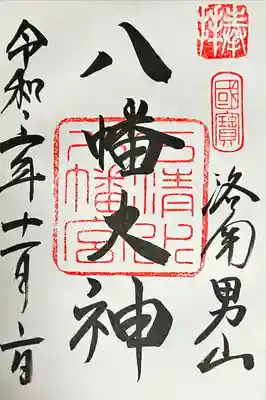 奉拝
國寶
洛南男山
八幡大神
石清水
八幡宮
令和六年十一月二日